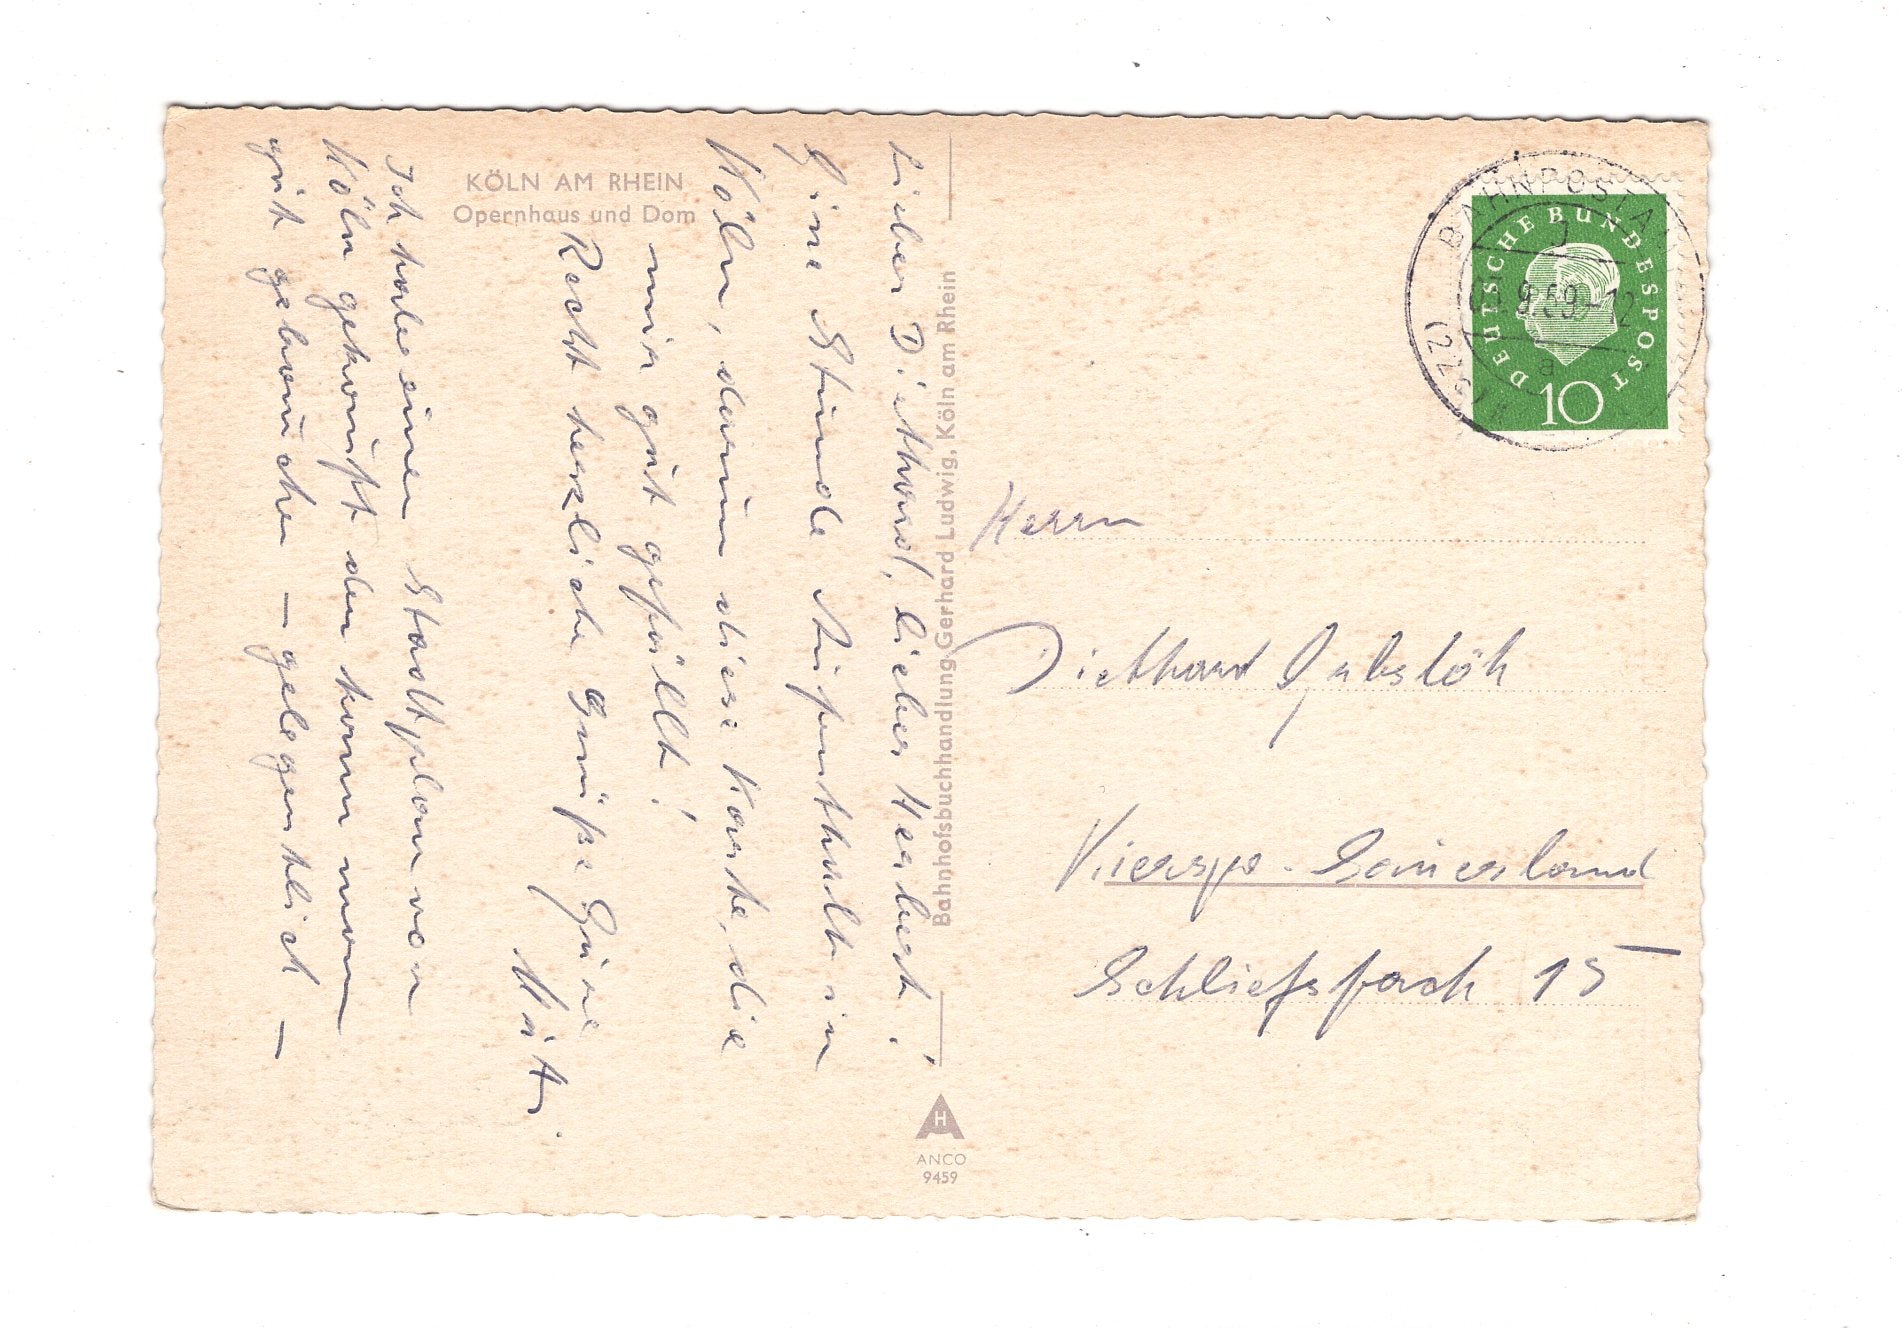 KÖLN AM RHEIN
Opernhaus und Dom
Lieber Diethard, lieber Herbert!
Eine Stunde Aufenthalt in
Köln, darum diese Karte, die
mir gut gefällt!
Recht herzliche Grüße Eure
Mutti.
Ich habe einen Stadtplan von
Köln gekauft den kann man
gut gebrauchen – gelegentlich –
Bahnhofsbuchhandlung Gerhard Ludwig, Köln am Rhein
H
ANCO
9459
BAHNPOSTA
(22c)
9.59-12
a
DEUTSCHE BUNDESPOST
10
Herrn
Diethard
Kierspe-Sauerland
Schließfach 15